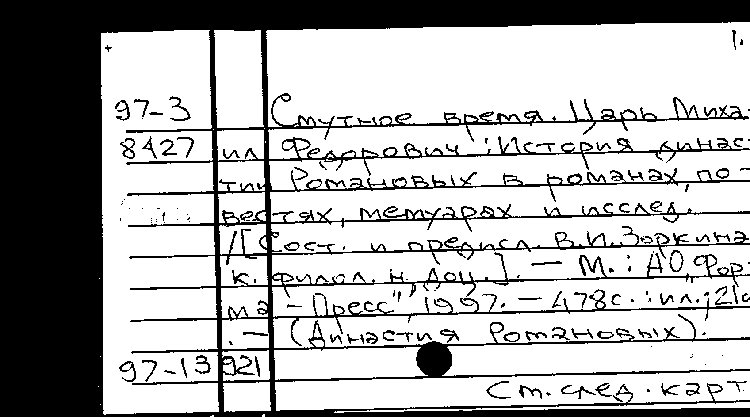 1.
97-3 Смутное время. Царь Миха
8427 ил Федорович : История динас
тии Романовых в романах, по-
вестях, мемуарах и исслед.
/[Сост. и предисл. В.И. Зоркина
к. филол. н., доц.]. — М. : АО „Фор
ма-Пресс", 1997. — 478с. : ил.;
. — (Династия Романовых).
97-13 921
См. след. карт